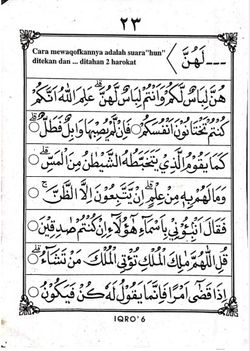 ٢٣
Cara mewaqofkannya adalah suara"hun"
ditekan dan ... ditahan 2 harokat
ـــ لَهُنَّ
هُنَّ لِبَاسٌ لَكُمْ وَاَنْتُمْ لِبَاسٌ لَهُنَّ ۗ عَلِمَ اللهُ اَنَّكُمْ
كُنْتُمْ تَخْتَانُوْنَ اَنْفُسَكُمْ ○ فَاِنْ لَمْ يُصِبْهَا وَابِلٌ فَطَلٌّ ○
كَمَا يَقُوْمُ الَّذِيْ يَتَخَبَّطُهُ الشَّيْطٰنُ مِنَ الْمَسِّ ○
وَمَا لَهُمْ بِهٖ مِنْ عِلْمٍ ۗ اِنْ يَتَّبِعُوْنَ اِلَّا الظَّنَّ ○
فَقَالَ اَنْبِئُوْنِيْ بِاَسْمَاۤءِ هٰۤؤُلَاۤءِ اِنْ كُنْتُمْ صٰدِقِيْنَ
قُلِ اللّٰهُمَّ مٰلِكَ الْمُلْكِ تُؤْتِى الْمُلْكَ مَنْ تَشَاۤءُ ○
اِذَا قَضٰى اَمْرًا فَاِنَّمَا يَقُوْلُ لَهٗ كُنْ فَيَكُوْنُ ○
IQRO'6